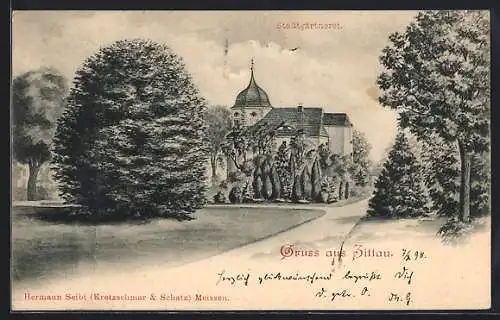 Stadtgärtnerei.
Gruss aus Zittau. 7/6 98.
Herzlich glückwünschend begrüßt Dich
d. getr. O.
Hermann Seibt (Kretzschmar & Schatz) Meissen.